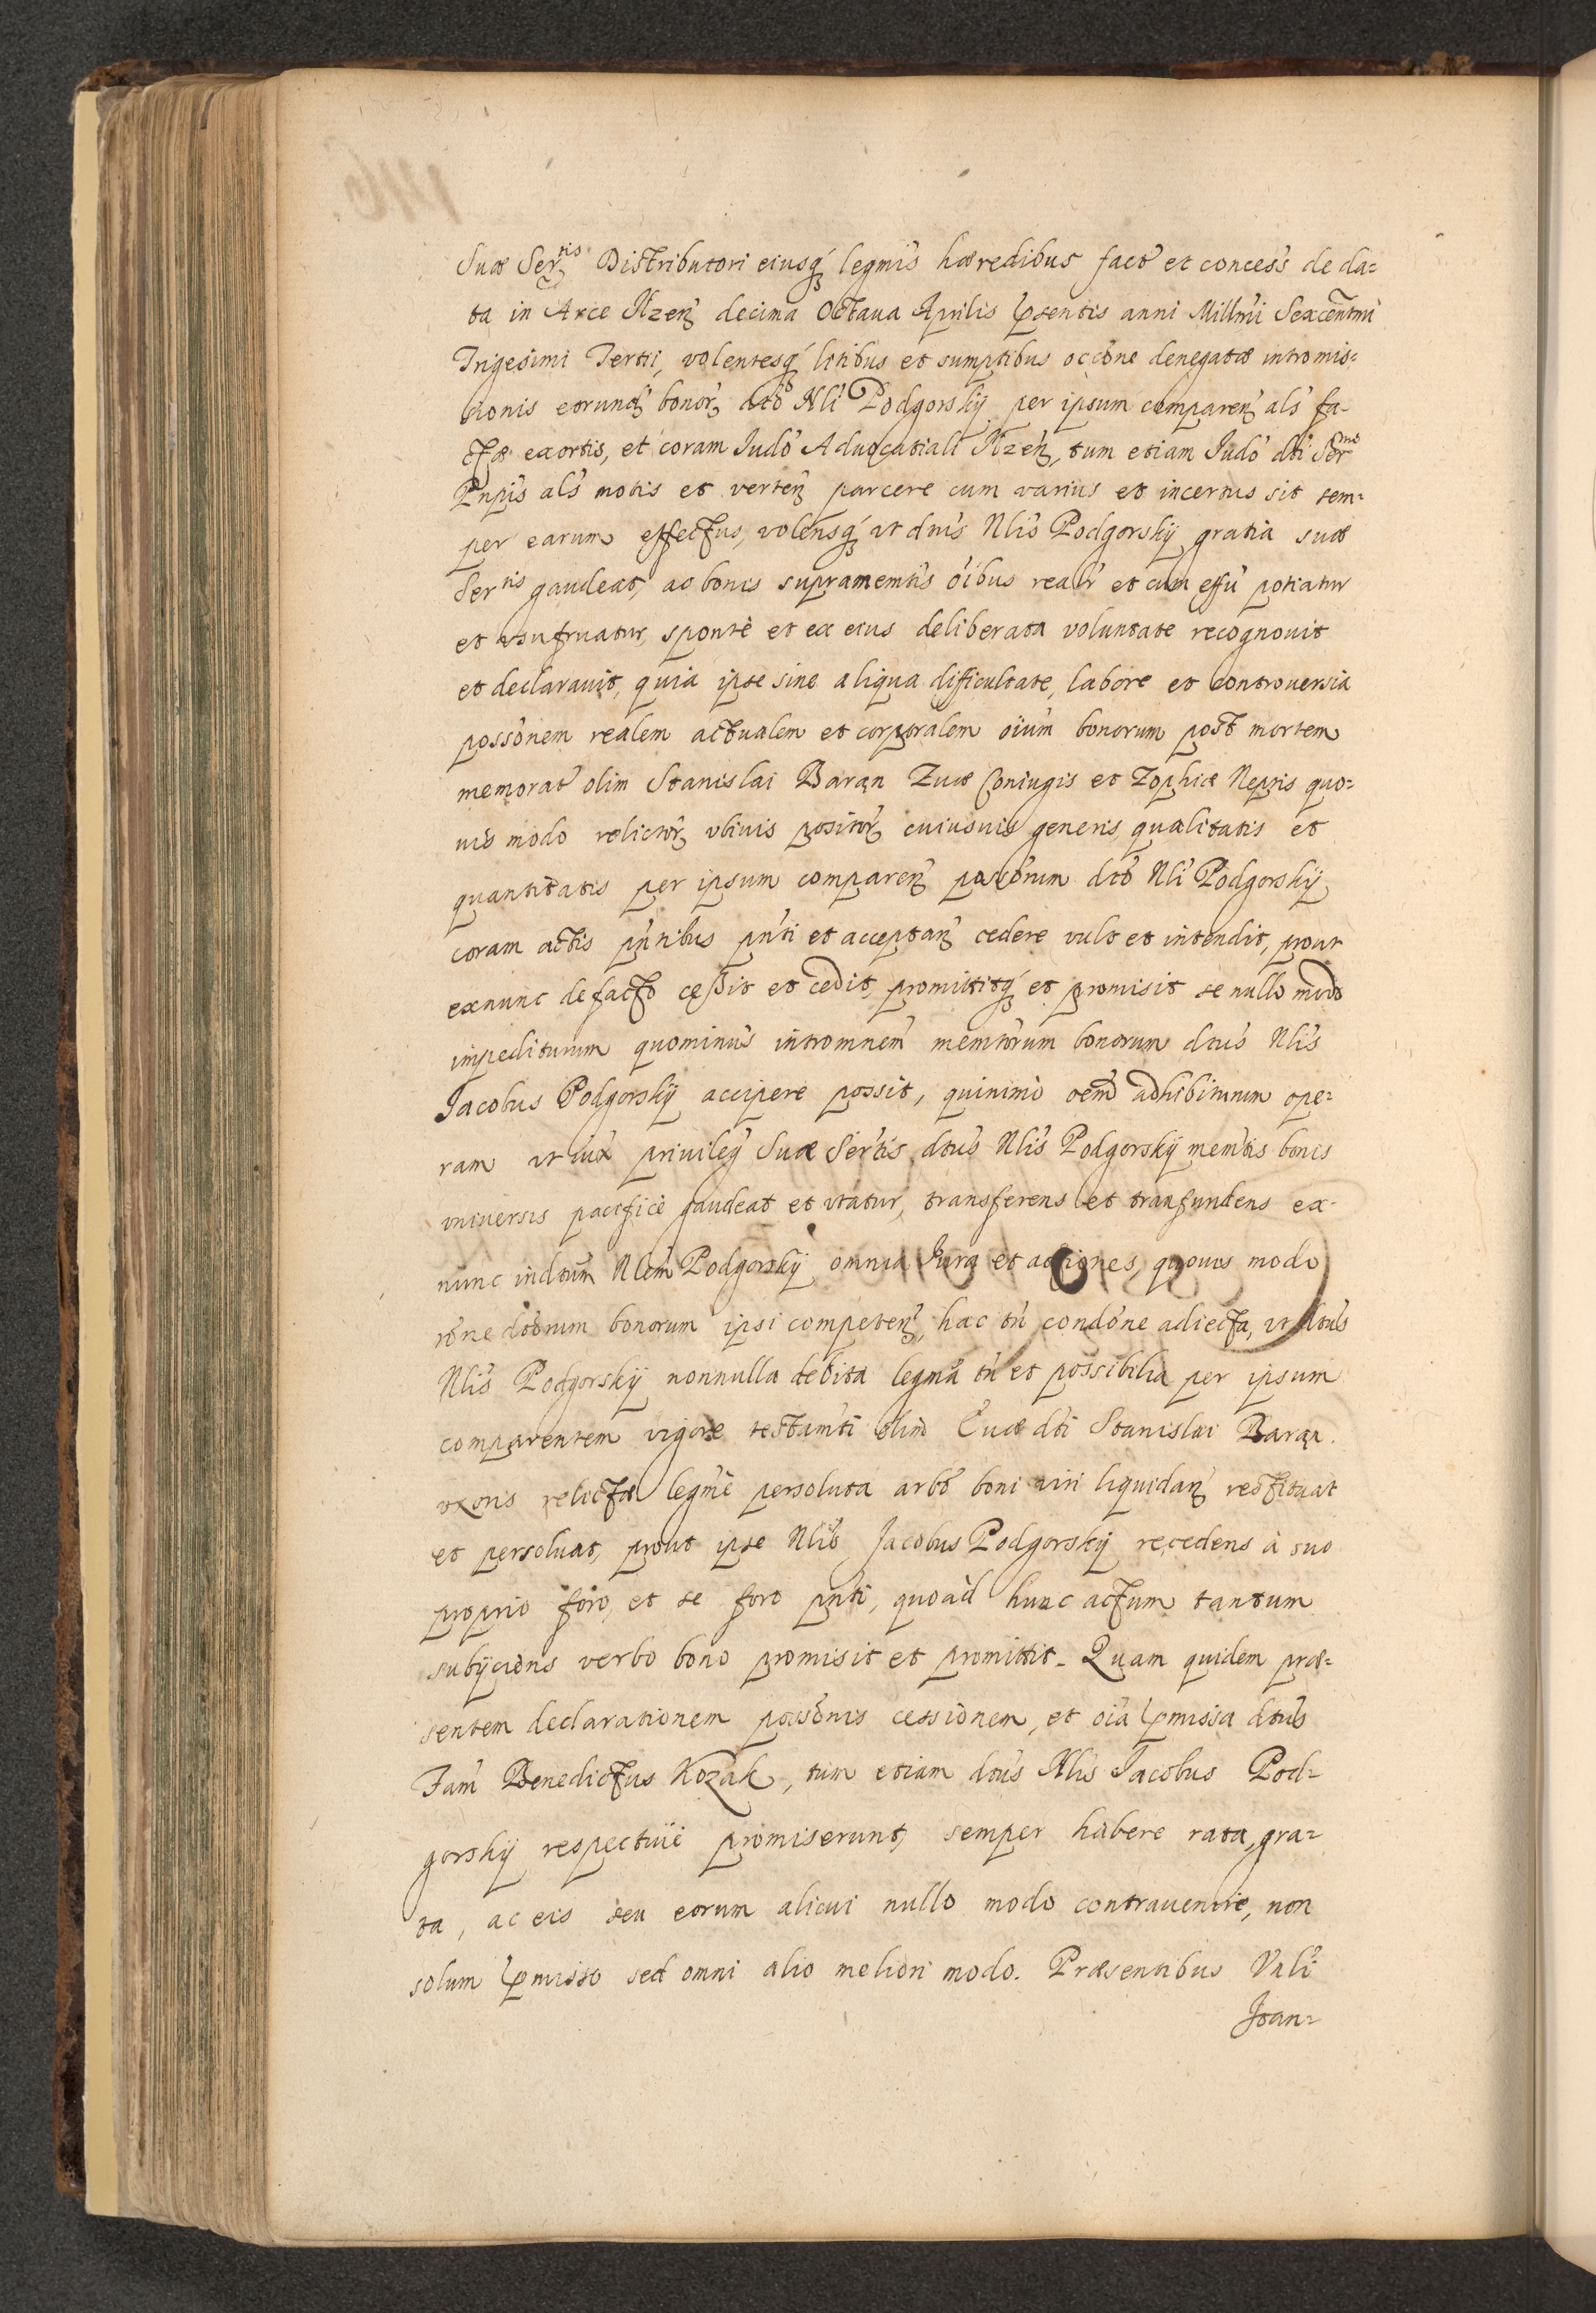 Suæ Ser^tis Distributori eiusq́ʒ legmis hæredibus fact̃ et concess̃ de da=
ta in Arce Rzeñ decima Octaua Aprilis p̃sentis anni Millmi Sexcentmi
Trigesimi Tertii, volentesq́ʒ litibus et sumptibus occõne denegatæ intromis=
sionis eorund̃ bonor̃ dcto Nli Podgorskÿ per ipsum comparen̄ als̃ fa-
ctæ exortis, et coram Judõ Aduocatiali Rzeñ, tum etiam Judõ dti Ser^mi
Pnpis als̃ motis et verteñ parcere cum varius et incertus sit sem=
per earum effectus, volensq́ʒ vt dnus Nlis Podgorskÿ gratia suæ
Ser^tis gaudeat, ac bonis supramemtis oibus realr̃ et cum effũ potiatur
et vsufruatur, spontè et ex eius deliberata voluntate recognouit
et declarauit, quia ipse sine aliqua difficultate, labore et controuersia
possõnem realem actualem et corporalem oium bonorum post mortem
memorat̃ olim Stanislai Baran Zuæ Coniugis et Zophiæ Neptis quo=
uis modo relictor̃ vbiuis positor̃ cuiusuis generis, qualitatis et
quantitatis per ipsum compareñ possorum dcto Nli Podgorskÿ
coram actis pñtibus pñti et acceptañ cedere vult et intendit, prout
exnunc de facto ceßit et cedit, promittitq́ʒ et promisit se nullo modo
impediturum quominus intromnem memtorum bonorum dtus Nlis
Jacobus Podgorskÿ accipere possit, quinimò oem adhibiturum ope=
ram vt iux privileg̃ Suæ Sertis, dtus Nlis Podgorskÿ memtis bonis
vniuersis pacificè gaudeat et vtatur, transferens et transfundens ex-
nunc in dtum Nlem Podgorskÿ omnia Jura et actiones, quouis modo
rõne dctorum bonorum ipsi competeñ, hac tñ condõne adiecta, vt dtus
Nlis Podgorskÿ nonnulla debita legma tñ et possibilia per ipsum
comparentem vigore testamti olim Euæ dti Stanislai Baran
vxoris relictæ legmè persoluta arbõ boni viri liquidañ restituat
et persoluat, prout ipse Nlis Jacobus Podgorskÿ recedens à suo
proprio foro, et se foro pñti, quoad hunc actum tantum
subÿciens verbo bono promisit et promittit. Quam quidem præ=
sentem declarationem possõnis cessionem, et oia p̃missa dtus
Fam̃ Benedictus Kozak, tum etiam dtus Nlis Jacobus Pod=
gorskÿ respectiuè promiserunt, semper habere rata, gra=
ta, ac eis seu eorum alicui nullo modo contrauenire, non
solum p̃misso sed omni alio meliori modo. Præsentibus Vnli
Joan=